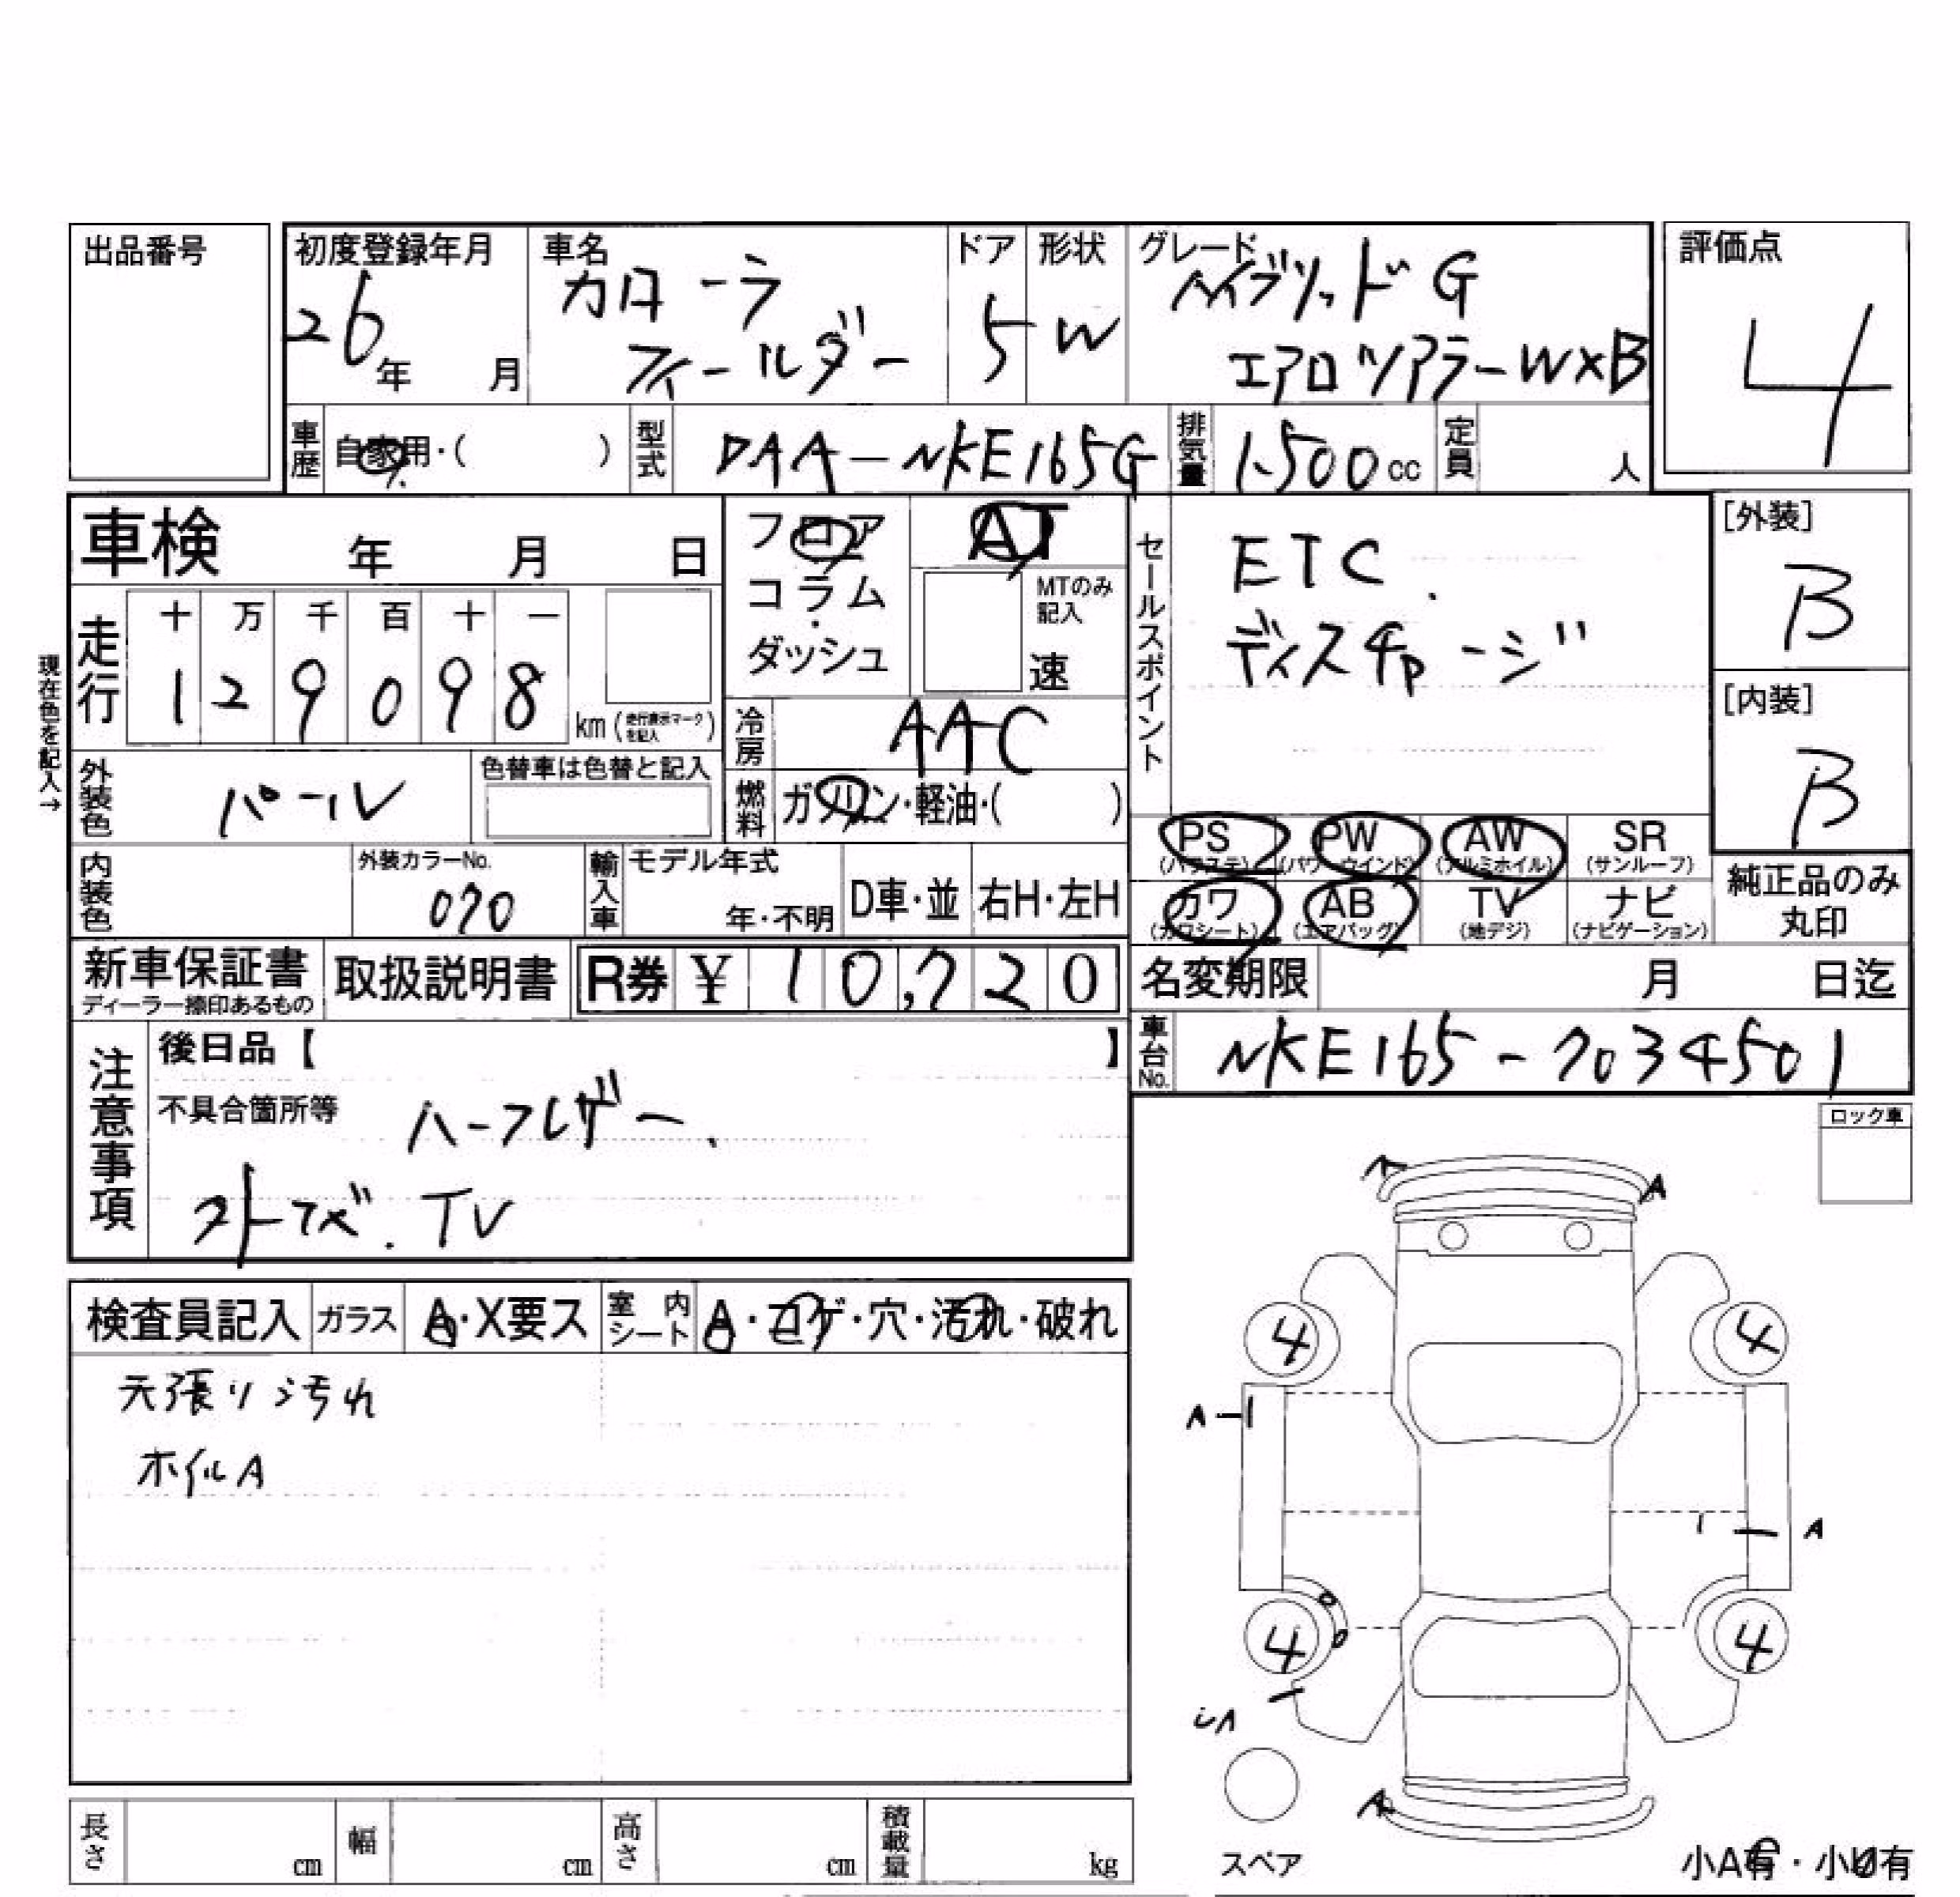 出品番号
初度登録年月
26年 月
車名
カローラ
フィールダー
ドア
5
形状
W
グレード
ハイブリッドG
エアロツアラーW×B
評価点
4
車歴 自家用・( )
型式 DAA-NKE165G
排気量 1500cc
定員 人
車検 年 月 日
フロア
コラム
・
ダッシュ
AT
MTのみ
記入
速
セールスポイント
ETC.
ディスチャージ
[外装]
B
[内装]
B
現在色を記入→
走行
十 万 千 百 十 一
1 2 9 0 9 8
km (走行表示マークを記入)
冷房 AAC
燃料 ガソリン・軽油・( )
外装色 パール
色替車は色替と記入
内装色
外装カラーNo.
070
輸入車
モデル年式
年・不明
D車・並
右H・左H
PS (パワステ)
PW (パワーウインド)
AW (アルミホイル)
SR (サンルーフ)
カワ (カワシート)
AB (エアバッグ)
TV (地デジ)
ナビ (ナビゲーション)
純正品のみ
丸印
新車保証書
ディーラー捺印あるもの
取扱説明書
R券 ¥ 10,720
名変期限 月 日迄
車台No. NKE165-7034501
注意事項
後日品【 】
不具合箇所等 ハーフレザー.
TV
ロック車
検査員記入
ガラス A・X要ス
室内シート A・コゲ・穴・汚れ・破れ
天張り汚れ
ホイルA
A
A
4
4
A
A
4
4
A
スペア
小A有・小U有
長さ cm
幅 cm
高さ cm
積載量 kg